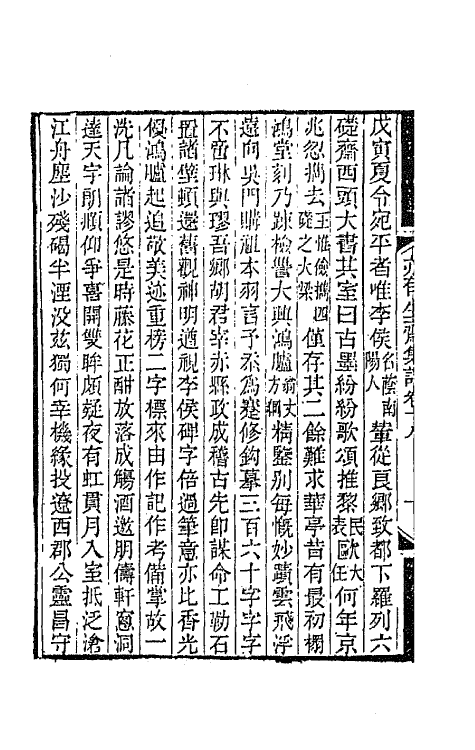 戊寅夏令宛平者唯李侯名蔭南陽人輦從良鄉致都下羅列六
礎齋西頭大書其室曰古墨紛紛歌頌推黎民表歐大任何年京
兆忽攜去王惟儉攜四礎之大梁僅存其二餘難求華亭昔有最初搨
鴻堂刻乃疎檢讐大興鴻臚翁丈方綱精鑒別每慨妙蹟雲飛浮
遠向吳門購祖本羽言予炁為雙修鈎摹三百六十字字字
不啻琳與璆吾鄉胡君宰赤縣政成稽古先卽謀命工勒石
置諸壁頓還舊觀神明遒視李侯碑字倍過筆意亦比香光
優鴻臚起追敬美迹重榜二字標來由作記作考備掌故一
洗凡論諸謬悠是時藤花正酣放落成觴酒邀朋儔軒窗洞
達天宇朗頫仰爭喜開雙眸頗疑夜有虹貫月入室抵泛滄
江舟塵沙殘碣半湮没茲獨何幸機緣投遼西郡公靈昌守